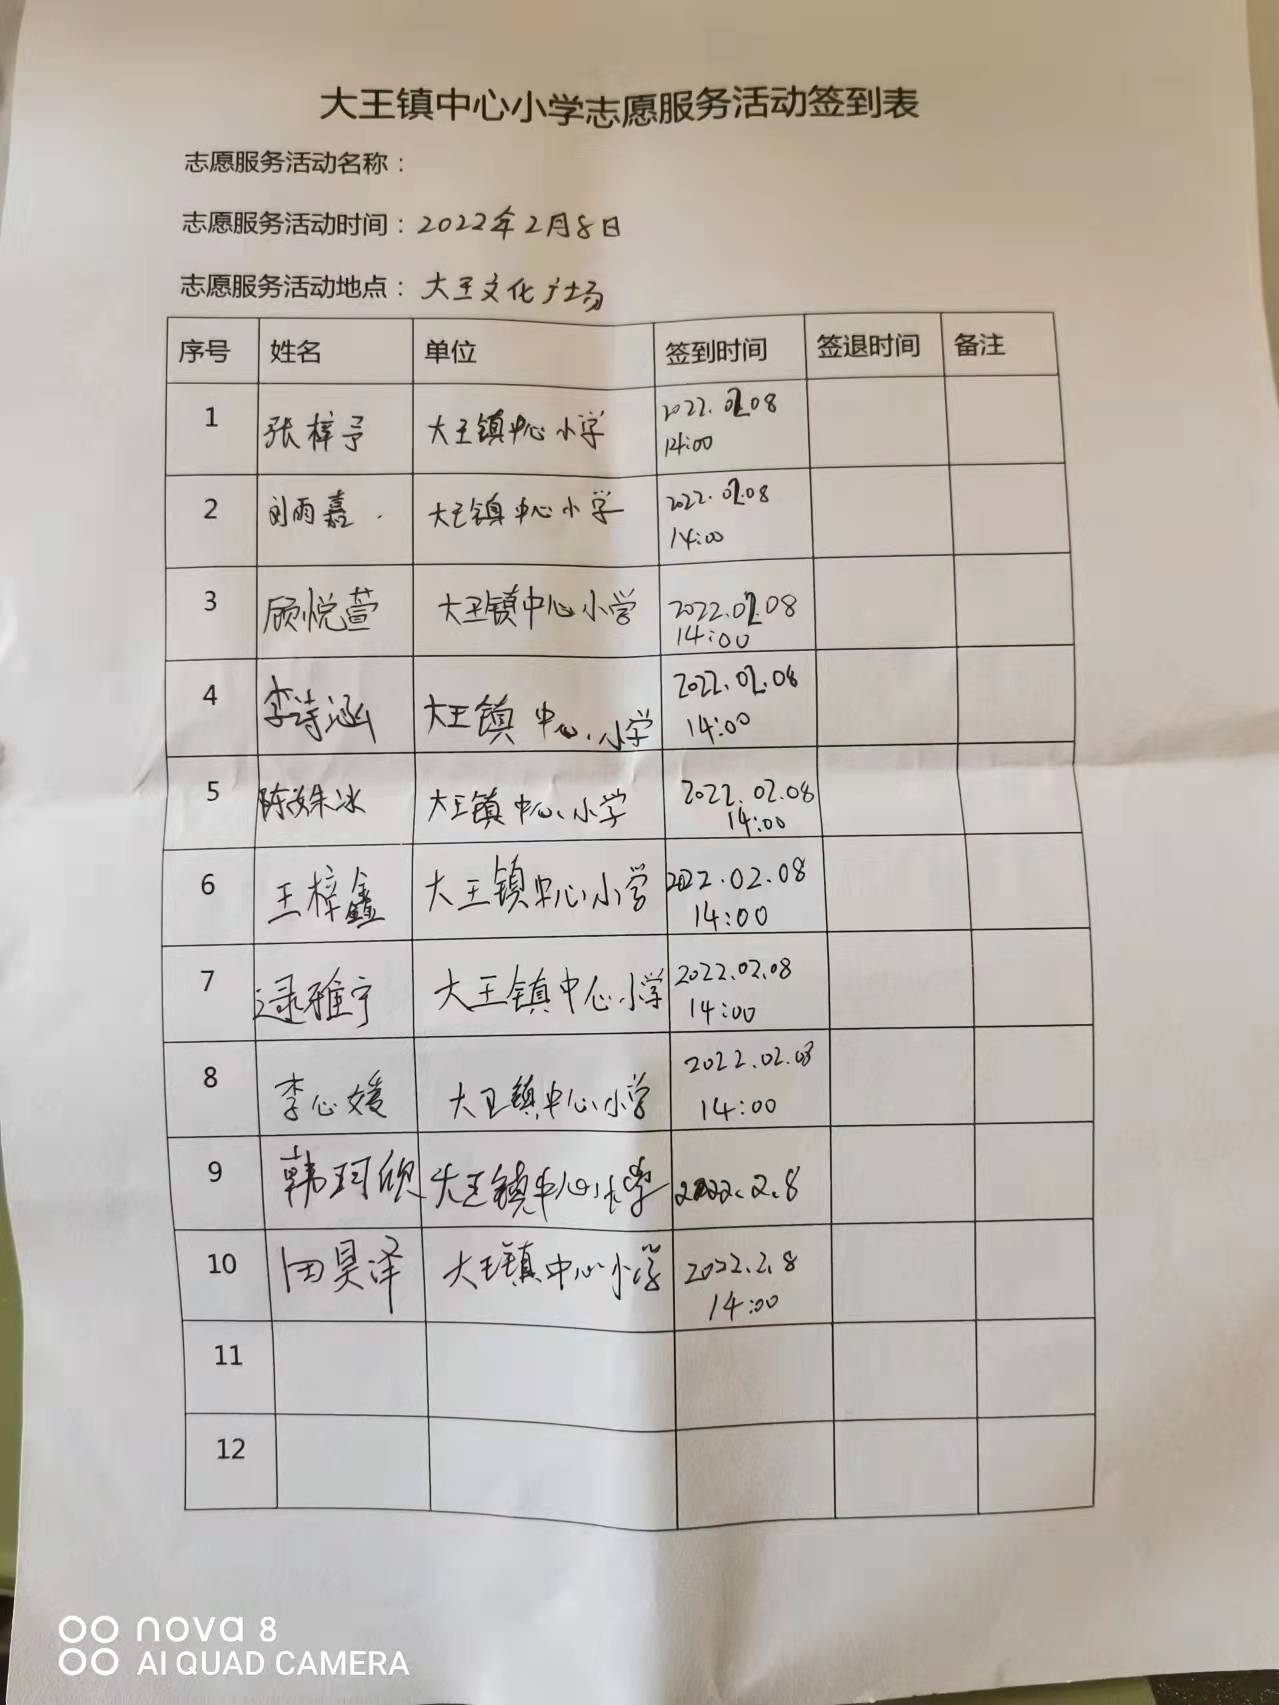 大王镇中心小学志愿服务活动签到表
志愿服务活动名称：
志愿服务活动时间：2022年2月8日
志愿服务活动地点：大王文化广场
序号 姓名 单位 签到时间 签退时间 备注
1 张梓予 大王镇中心小学 2022.02.08
14:00
2 刘雨嘉 大王镇中心小学 2022.02.08
14:00
3 顾悦萱 大王镇中心小学 2022.02.08
14:00
4 李诗涵 大王镇中心小学 2022.02.08
14:00
5 陈姝冰 大王镇中心小学 2022.02.08
14:00
6 王梓鑫 大王镇中心小学 2022.02.08
14:00
7 逯雅宁 大王镇中心小学 2022.02.08
14:00
8 李心媛 大王镇中心小学 2022.02.08
14:00
9 韩珂欣 大王镇中心小学 2022.2.8
10 田昊泽 大王镇中心小学 2022.2.8
14:00
11
12
nova 8
AI QUAD CAMERA